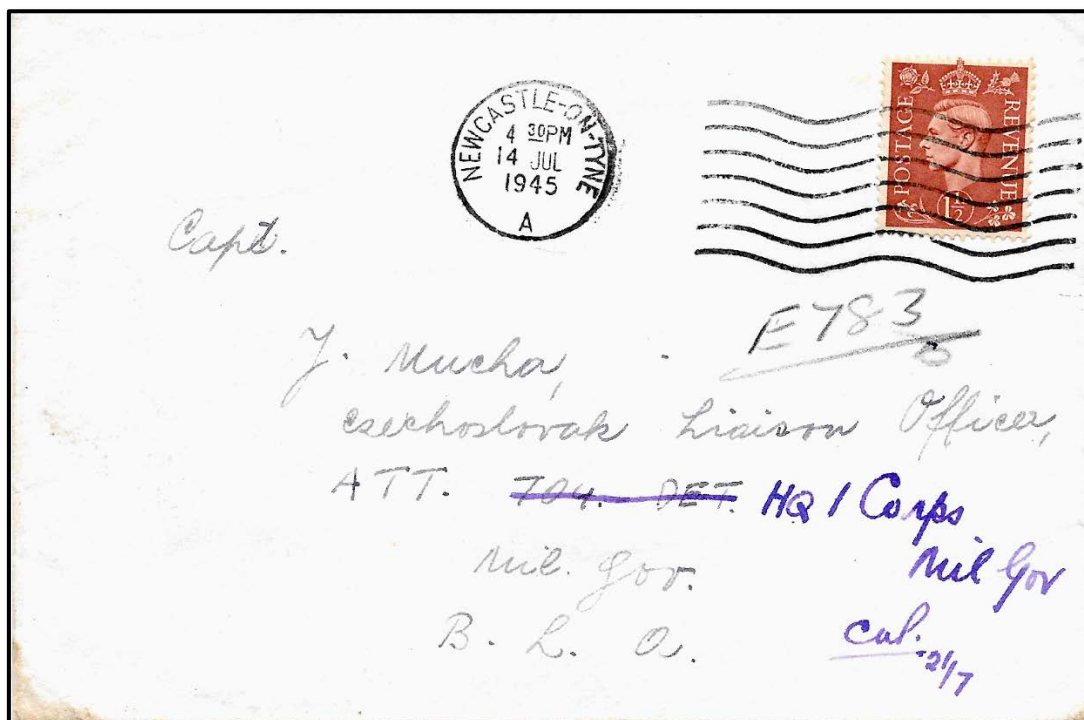 NEWCASTLE-ON-TYNE
4 30PM
14 JUL
1945
A
POSTAGE REVENUE
1½
Capt.
E783
J. Mucha,
Czechoslovak Liaison Officer,
ATT. 704. DET. HQ 1 Corps
Mil. Gov. Mil Gov
B. L. A.
21/7